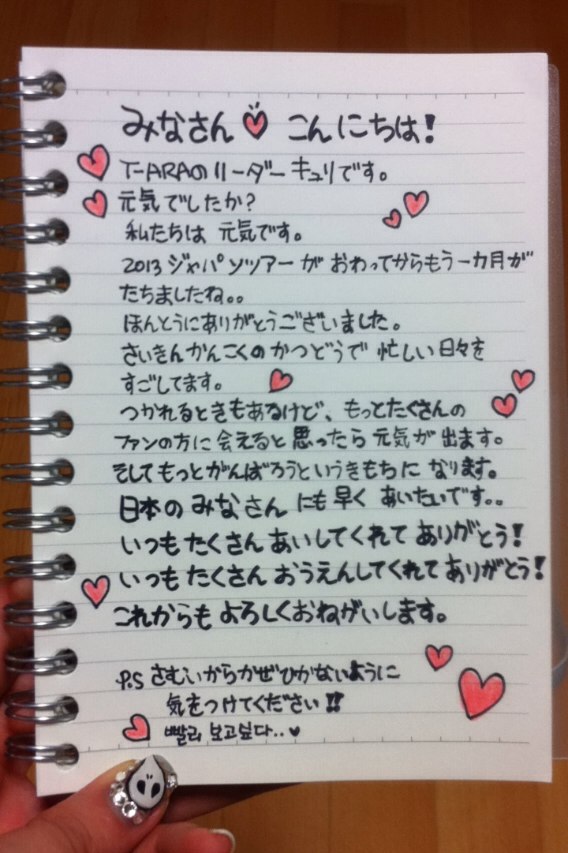 みなさん♥ こんにちは!
T-ARAのリーダーキュリです。
元気でしたか?
私たちは 元気です。
2013 ジャパンツアーが おわってからもう一カ月が
たちましたね。。
ほんとうにありがとうございました。
さいきんかんこくのかつどうで 忙しい日々を
すごしてます。
つかれるときもあるけど、もっとたくさんの
ファンの方に会えると思ったら元気が出ます。
そしてもっとがんばろうというきもちに なります。
日本のみなさんにも早く あいたいです。。
いつもたくさんあいしてくれて ありがとう!
いつもたくさんおうえんしてくれて ありがとう!
これからも よろしくおねがいします。
P.S さむいからかぜひかないように
気をつけてください!!
빨리 보고싶다..♥